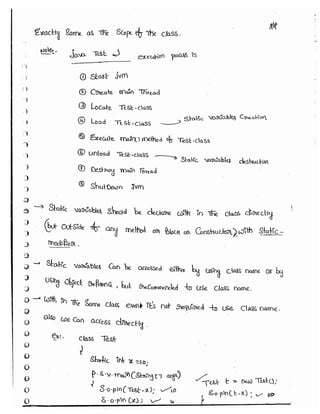 Exactly Same as the Scope of the class.
Note:- Java Test ↵ execution process is
① Start Jvm
② Create main Thread
③ Locate Test.class
④ Load Test.class → Static variables Creation
⑤ Execute main() method of Test.class
⑥ unload Test.class → Static variables destruction
⑦ Destroy main Thread
⑧ ShutDown Jvm
→ Static variables Should be declare with in the class directly
(but outside of any method or Block or Constructor) with Static-
modifier.
→ Static variables Can be accessed either by using class name or by
using Object reference, but recommended to use class name.
→ with in the Same class even it's not required to use Class name.
also we Can access directly.
Ex:- class Test
{
Static int x=10;
P.S.V.main(String[] args)
{ S.o.pln(Test.x); ✓10
S.o.pln(x); ✓
✓Test t = new Test();
S.o.pln(t.x); ✓ 10